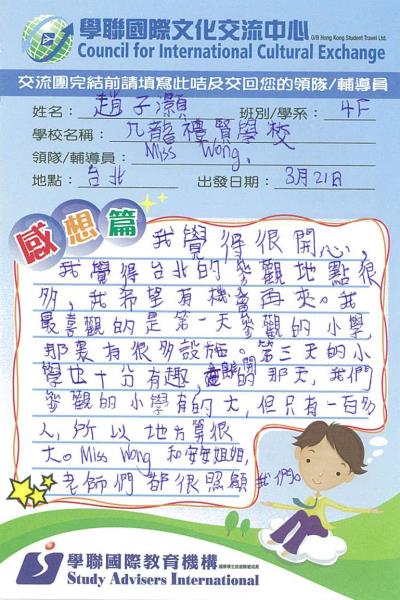 學聯國際文化交流中心 O/B Hong Kong Student Travel Ltd.
Council for International Cultural Exchange
交流團完結前請填寫此咭及交回您的領隊/輔導員
姓名： 趙子灝 班別/學系： 4F
學校名稱： 九龍禮賢學校
領隊/輔導員： Miss Wong.
地點： 台北 出發日期： 3月21日
感想篇
我覺得很開心，
我覺得台北的參觀地點很
多，我希望有機會再來。我
最喜觀的是第一天參觀的小學
那裏有很多設施。第三天的小
學也十分有趣，離開的那天，我們
參觀的小學有的大，但只有一百多
人，所以地方算很
大。Miss Wong 和安安姐姐，
老師們都很照顧我們。
學聯國際教育機構
Study Advisers International